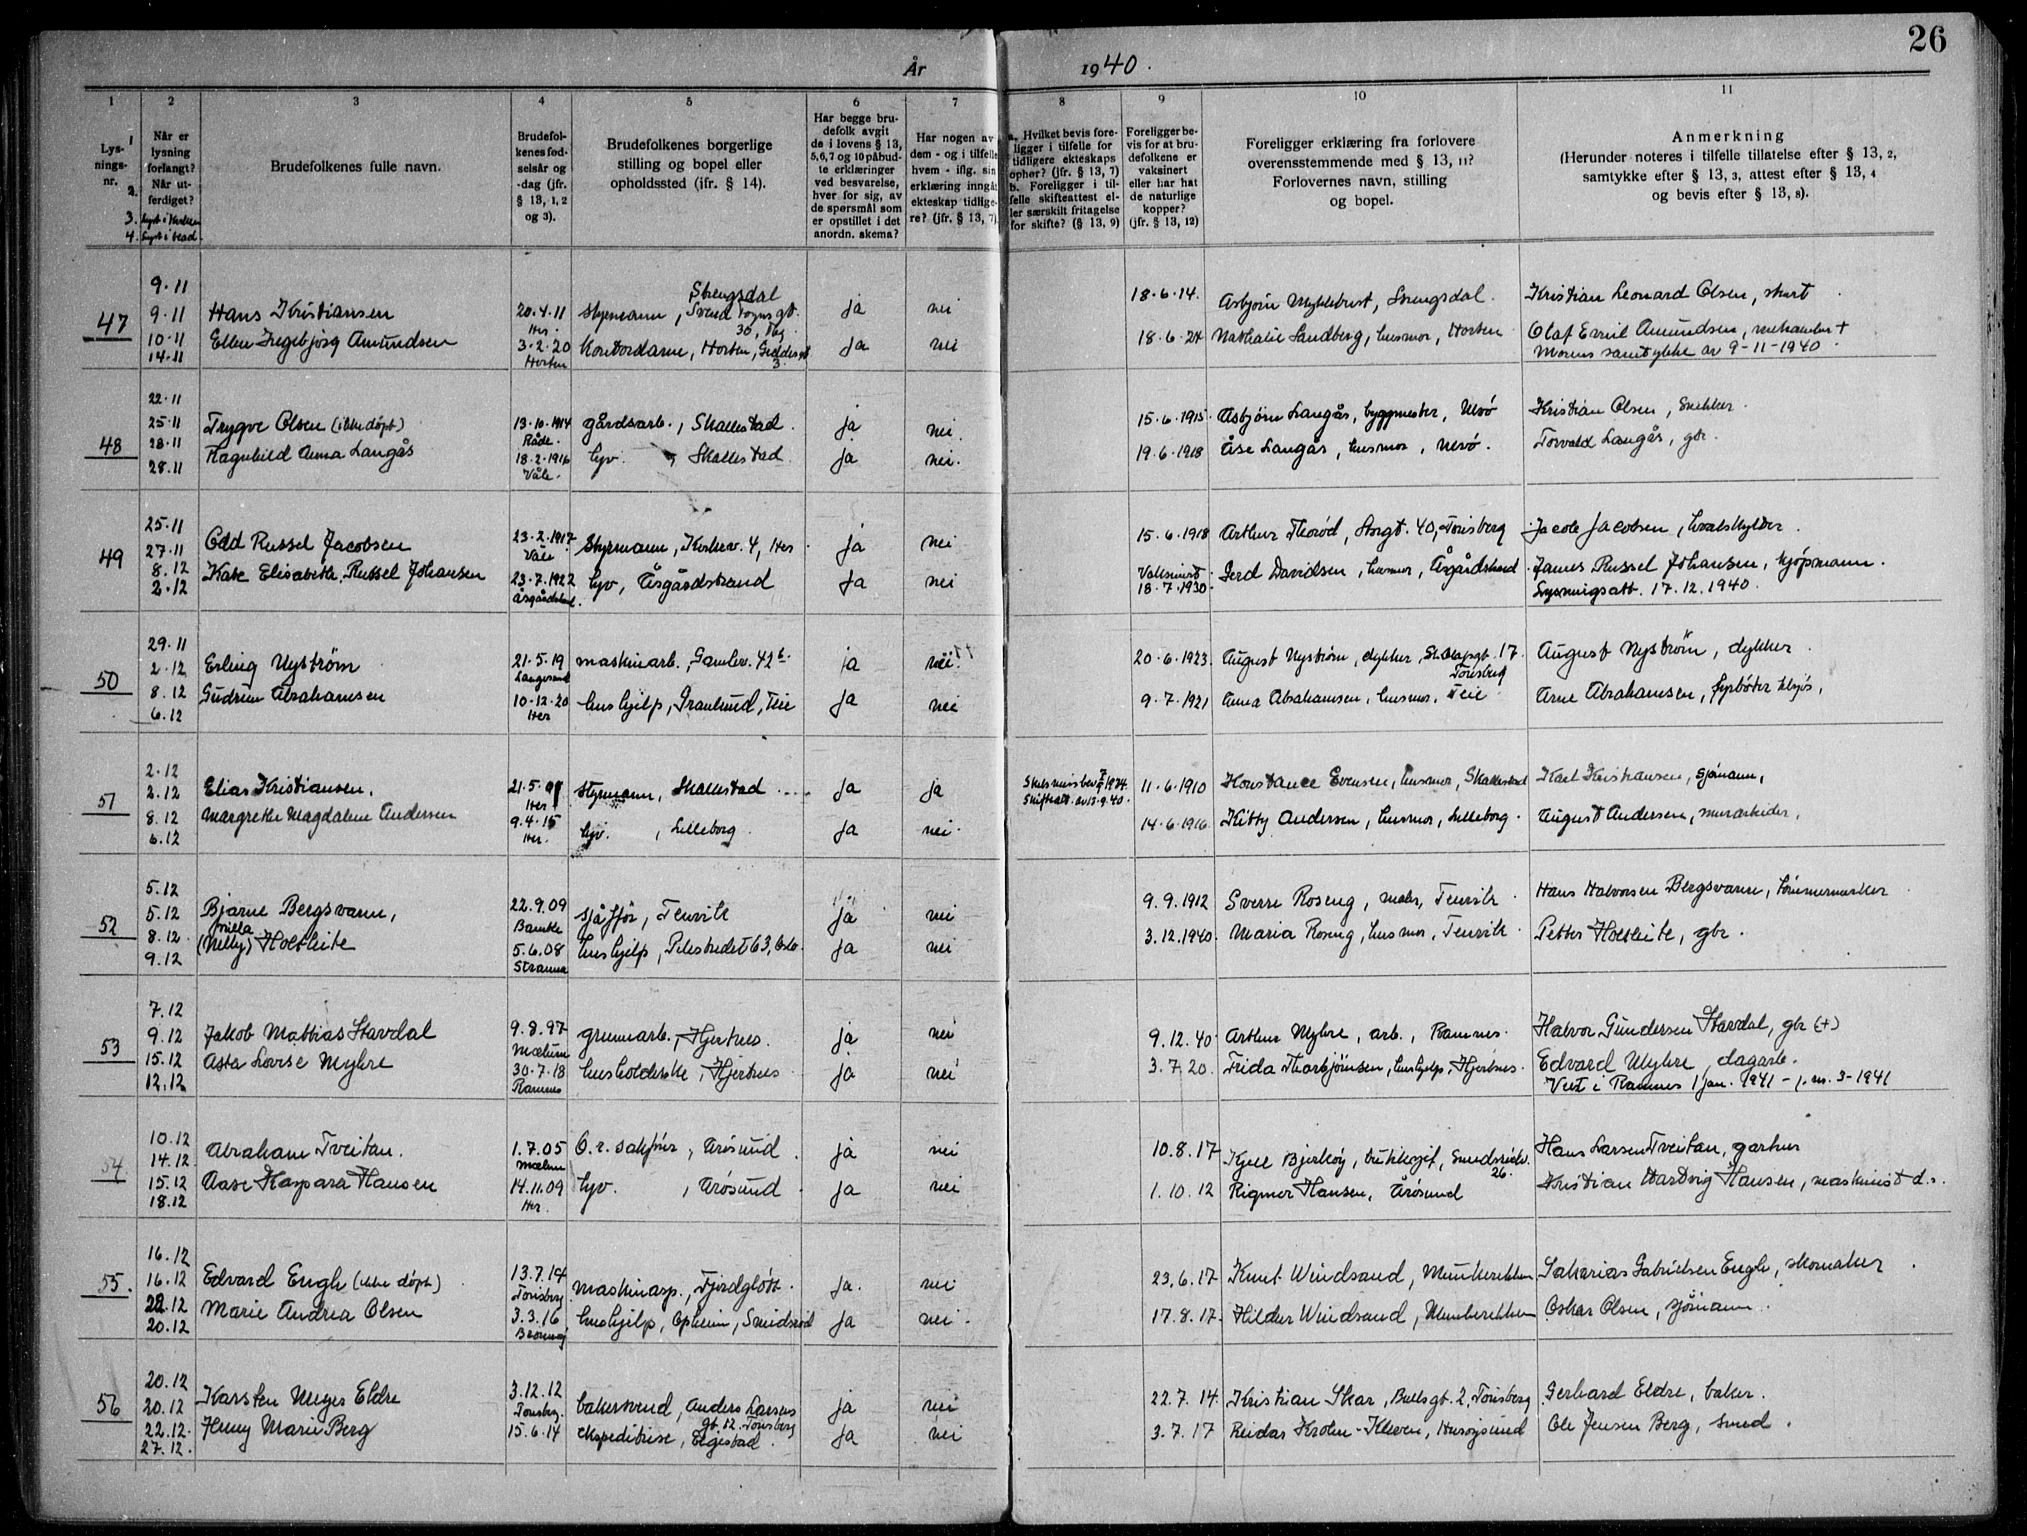 26
År 1940.
1 2 3 4 5 6 7 8 9 10 11
Lysningsnr.
Når er lysning forlangt? Når utferdiget?
Brudefolkenes fulle navn.
Brudefolkenes fødselsår og -dag (jfr. § 13, 1, 2 og 3).
Brudefolkenes borgerlige stilling og bopel eller opholdssted (jfr. § 14).
Har begge brudefolk avgit de i lovens § 13, 5, 6, 7 og 10 påbudte erklæringer ved besvarelse, hver for sig, av de spørsmål som er opstillet i det anordn. skema?
Har nogen av dem - og i tilfelle hvem - iflg. sin erklæring inngått ekteskap tidligere? (jfr. § 13, 7)
a. Hvilket bevis foreligger i tilfelle for tidligere ekteskaps ophør? (§ 13, 7) b. Foreligger i tilfelle skifteattest eller særskilt fritagelse for skifte? (§ 13, 9)
Foreligger bevis for at brudefolkene er vaksinert eller har hat de naturlige kopper? (jfr. § 13, 12)
Foreligger erklæring fra forlovere overensstemmende med § 13, 11? Forlovernes navn, stilling og bopel.
Anmerkning (Herunder noteres i tilfelle tillatelse efter § 13, 2, samtykke efter § 13, 3, attest efter § 13, 4 og bevis efter § 13, 8).
47
9.11 9.11 10.11 14.11
Hans Kristiansen 20.4.11 Her. styrmann, Strengsdal Svend Foyns gt. 30, Tbg. ja nei 18.6.14. Asbjørn Myklebust, Strengsdal. Kristian Leonard Olsen, skurt
Ellen Ingebjørg Amundsen 3.2.20 Horten kontordame, Horten, Geddesgt 3. ja nei 18.6.24 Nathalie Sandberg, husmor, Horten Olaf Emil Amundsen, mekaniker +
Morens samtykke av 9-11-1940.
48
22.11 25.11 28.11 28.11
Trygve Olsen (ikke døpt) 13.10.1914 Råde. gårdsarb., Skallestad. ja nei. 15.6.1915 Asbjørn Langås, byggmester, Nesø Kristian Olsen, snekker.
Ragnhild Anna Langås 18.2.1916 Våle. hjv. , Skallestad. ja nei. 19.6.1918 Åse Langås, husmor, Nesø. Torvald Langås, gbr.
49
25.11 27.11 8.12 2.12
Odd Russel Jacobsen 23.2.1917 Våle. styrmann, Kirkev. 4, Her ja nei 15.6.1918 Arthur Thorød, Storgt. 40, Tønsberg Jacob Jacobsen, hvalskytter.
Kate Elisabeth Russel Johansen 23.7.1922 Åsgårdstrand. hjv, Åsgårdstrand ja nei Vaksinert 18.7.1930. Gerd Davidsen, husmor, Åsgårdstrand. James Russel Johansen, kjøpmann.
Lysningsatt. 17.12.1940.
50
29.11 2.12 8.12 6.12
Erling Nystrøm 21.5.19 Langesund maskinarb., Gamlev. 42 b. ja nei. 20.6.1923. August Nystrøm, dykker, 17. Tønsberg August Nystrøm, dykker.
Gudrun Abrahamsen 10.12.20 Her hushjelp, Granlund, Teie ja nei 9.7.1921 Anna Abrahamsen, husmor, Teie. Arne Abrahamsen, fyrbøter tilsjøs,
51
2.12 2.12 8.12 6.12
Elias Kristiansen, 21.5.01 Her styrmann, Skallestad. ja ja 1934. Skifteatt. av 13.9.40. 11.6.1910 Konstance Evensen, husmor, Skallestad Karl Kristiansen, sjømann,
Margrethe Magdalene Andersen 9.4.15 Her. hjv. , Lilleborg. ja nei. 14.6.1916 Kitty Andersen, husmor, Lilleborg. August Andersen, murarbeider,
52
5.12 5.12 8.12. 9.12
Bjarne Bergsvann, 22.9.09 Bamble sjåffør, Tenvik ja nei 9.9.1912 Sverre Roseng, maler, Tenvik. Hans Halvorsen Bergsvann, tømmermerker
Milla (Nelly) Holtleite 5.6.08 Stranna hushjelp, Pilestredet 63, Oslo. ja nei 3.12.1940. Maria Roseng, husmor, Tenvik. Petter Holtleite, gbr.
53
7.12 9.12 15.12 12.12
Jakob Mathias Stavdal 9.8.97 Mælum grunnarb., Hjertnes. ja nei 9.12.40. Arthur Myhre, arb., Ramnes. Halvor Gundersen Stavdal, gbr (+)
Asta Lovise Myhre 30.7.18 Ramnes husholderske, Hjertnes ja nei 3.7.20. Frida Thorbjørnsen, hushjelp, Hjertnes. Edvard Myhre, dagarb.
Viet i Ramnes 1 jan. 1941 - 3-1941
54
10.12 14.12. 15.12 18.12
Abraham Tveitan. 1.7.05 Mælum O.r. sakfører, Årøsund. ja nei 10.8.17 Kjell Bjerkøy, Smidsrødv. 26. Hans Larsen Tveitan, gartner
Aase Kaspara Hansen 14.11.09 Her. hjv. , Årøsund. ja nei 1.10.12 Rigmor Hansen, Årøsund Kristian Hartvig Hansen, maskinist d.s.
55.
16.12 16.12 22.12 20.12
Edvard Engh (ikke døpt) 13.7.14 Tønsberg maskinasp., Fjordgløtt. ja. nei 23.6.17. Knut Windsand, Munkerekken Sakarias Gabrielsen Engh, skomaker
Marie Andrea Olsen 3.3.16 Brønnøy hushjelp, Opheim, Smidsrød ja nei. 17.8.17. Hildur Windsand, Munkerekken Oskar Olsen, sjømann.
56
20.12 20.12 22.12. 27.12.
Karsten Meyer Eldre 3.12.12 Tønsberg. bakersvend, Anders Larsens gt. 12. Tønsberg ja nei 22.7.14. Kristian Skar, Bullsgt. 2, Tønsberg Gerhard Eldre, baker.
Henny Marie Berg 15.6.14 ekspeditrise, Elgestad. ja nei 3.7.17 Reidar Krohn-Kleven, Husøysund Ole Jensen Berg, smed.